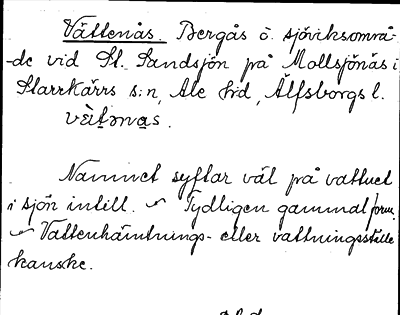 Vättenås. Bergås ö. sjöviksområ-
-de vid St. Sandsjön på Mollsjönäs i
Starrkärrs s:n, Ale hd, Älfsborgs l.
Namnet syftar väl på vattnet
i sjön intill. ~ Tydligen gammal form.
~ Vattenhämtnings- eller vattningsställe
kanske.